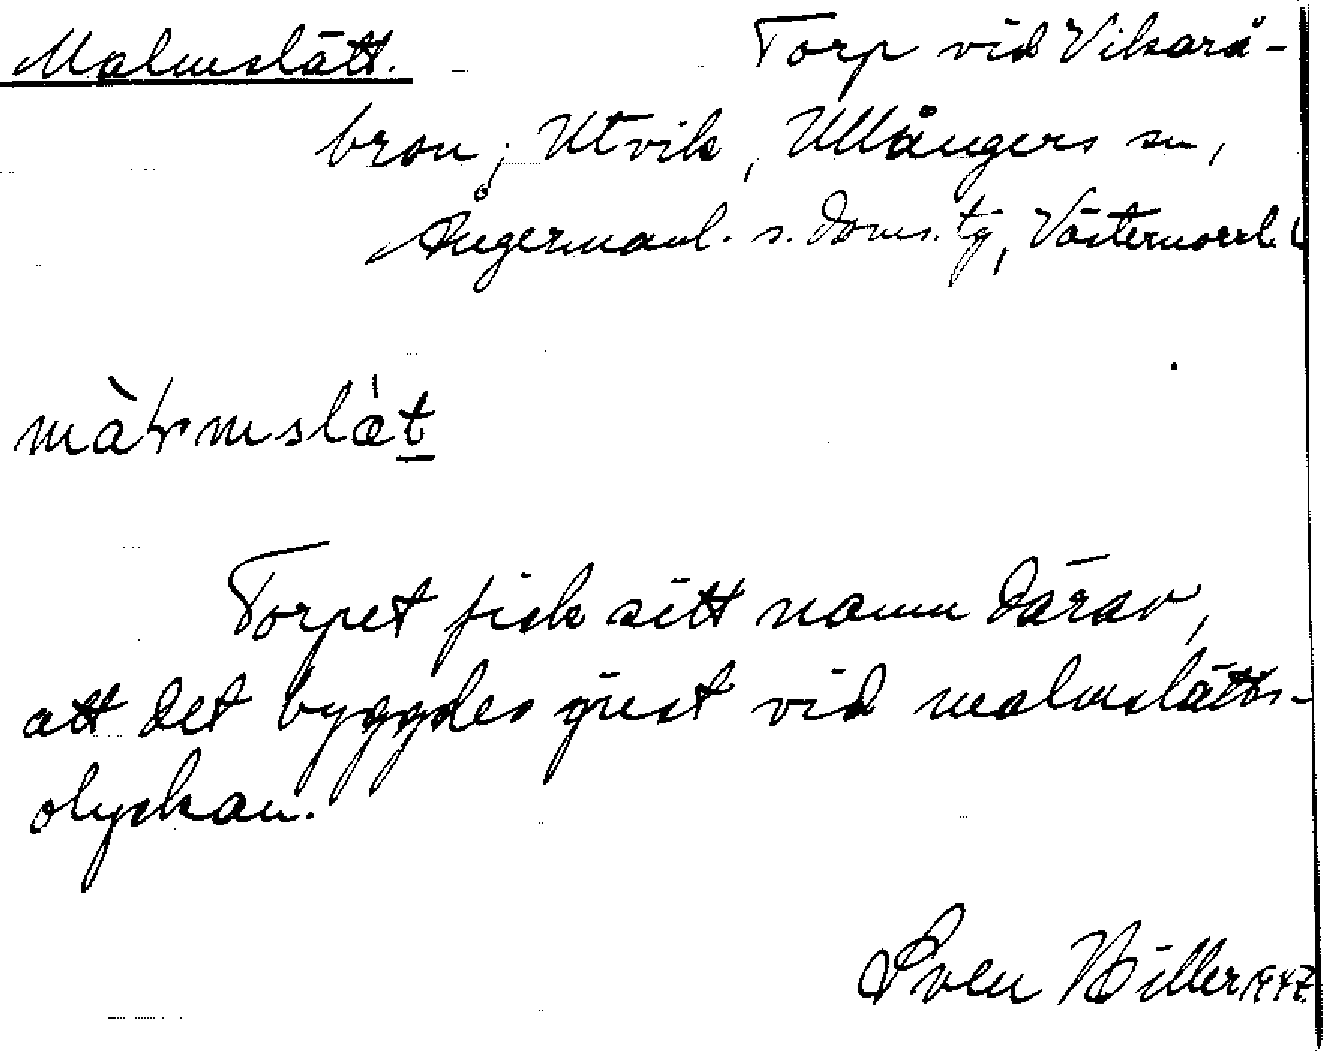 Malmslätt. Torp vid Vikarå-
bron, Utvik, Ullångers sn,
Ångermanl. s. doms. tg, Västernorrl. L
màɭmslæ̀t
Torpet fick sitt namn därav,
att det byggdes just vid malmslätts-
olyckan.
Sven